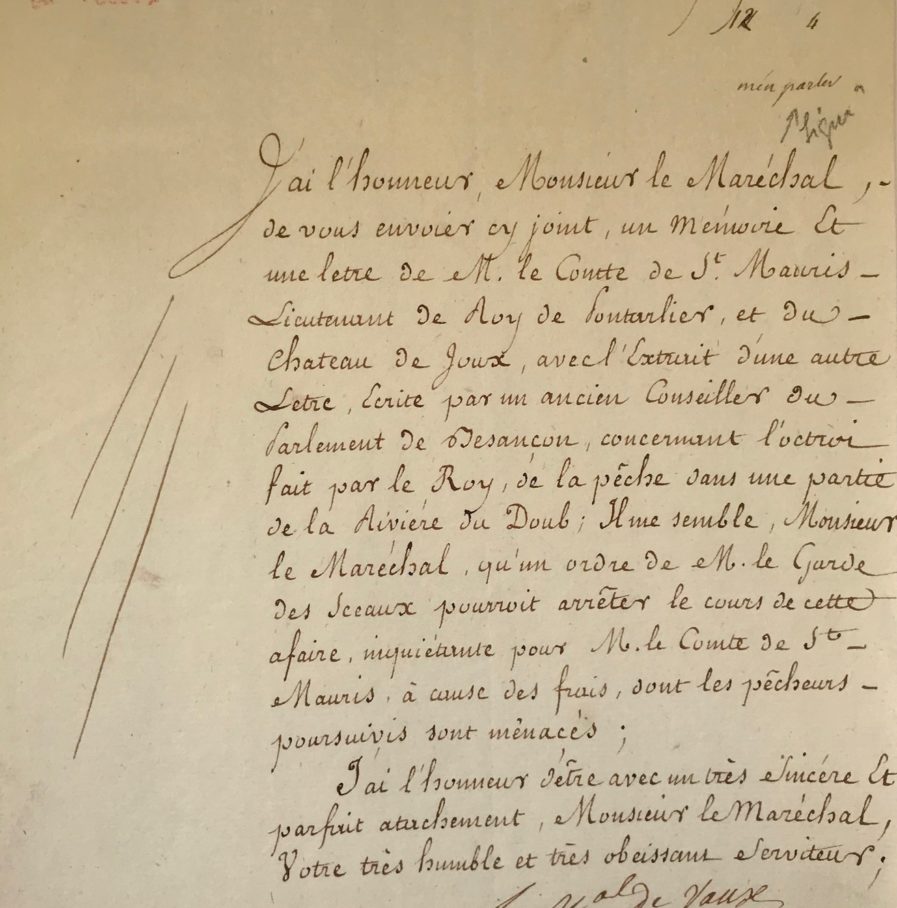 12 4
m'en parler
J'ai l'honneur, Monsieur le Maréchal,-
de vous envoiér cy joint, un Mémoire Et
une letre de M. le Comte de St. Mauris-
Lieutenant de Roy de Pontarlier, et du-
Chateau de Joux, avec l'Extrait d'une autre
Letre, Ecrite par un ancien Conseiller du-
Parlement de Besançon, concernant l'octroi
fait par le Roy, de la pêche dans une partie
de la Riviére du Doub; Il me semble, Monsieur
le Maréchal, qu'un ordre de M. le Garde
des Sceaux pourroit arrêter le cours de cette
afaire, inquiétante pour M. le Comte de St-
Mauris, à cause des frais, dont les pêcheurs-
poursuivis sont ménacés;
J'ai l'honneur d'être avec un très Sincére Et
parfait atachement, Monsieur le Maréchal,
Votre très humble et très obeissant Serviteur;
de Vaux